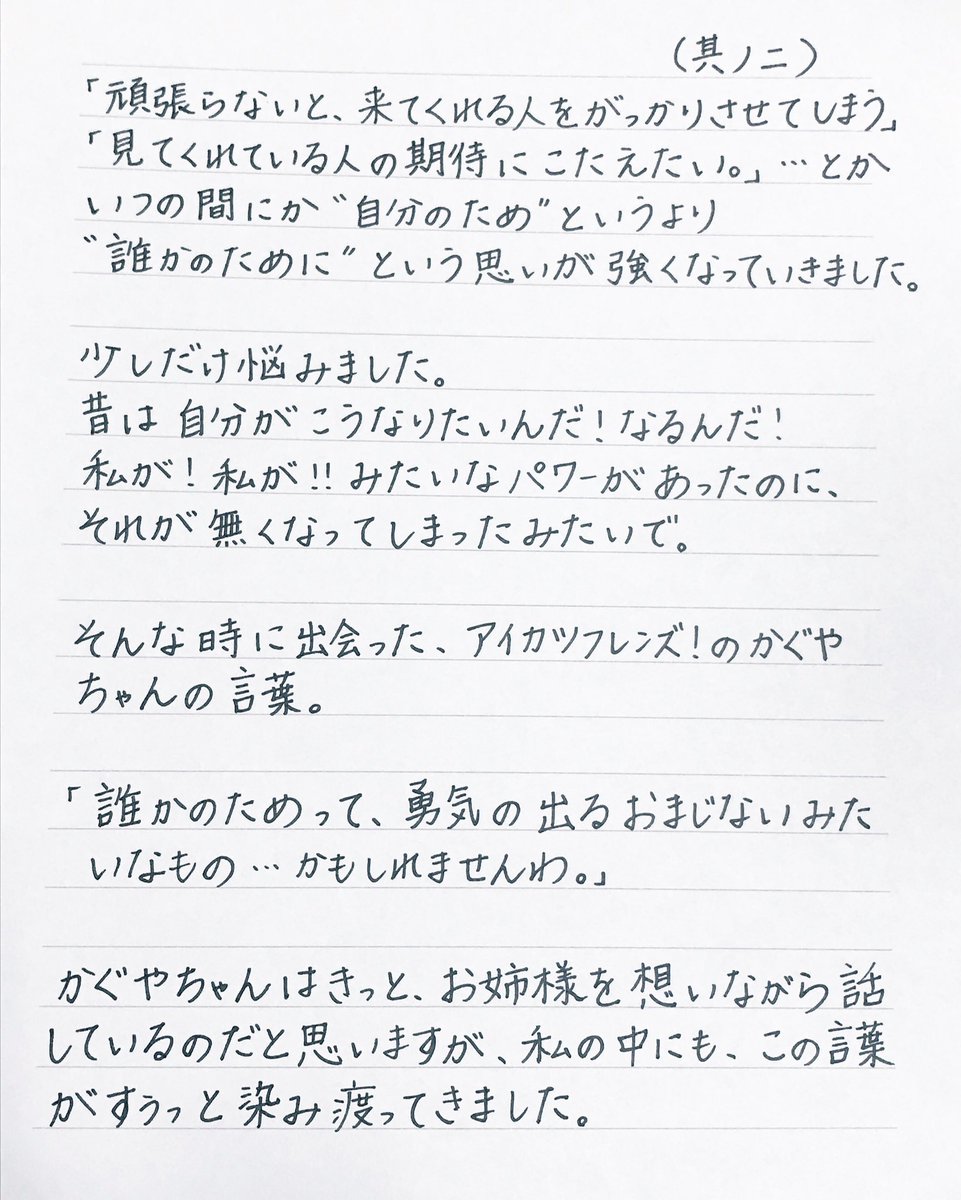 (其ノ二)
「頑張らないと、来てくれる人をがっかりさせてしまう」
「見てくれている人の期待にこたえたい。」…とか
いつの間にか“自分のため”というより
“誰かのために”という思いが強くなっていきました。
少しだけ悩みました。
昔は自分がこうなりたいんだ!なるんだ!
私が!私が!!みたいなパワーがあったのに、
それが無くなってしまったみたいで。
そんな時に出会った、アイカツフレンズ!のかぐや
ちゃんの言葉。
「誰かのためって、勇気の出るおまじないみた
いなもの…かもしれませんわ。」
かぐやちゃんはきっと、お姉様を想いながら話
しているのだと思いますが、私の中にも、この言葉
がすぅっと染み渡ってきました。